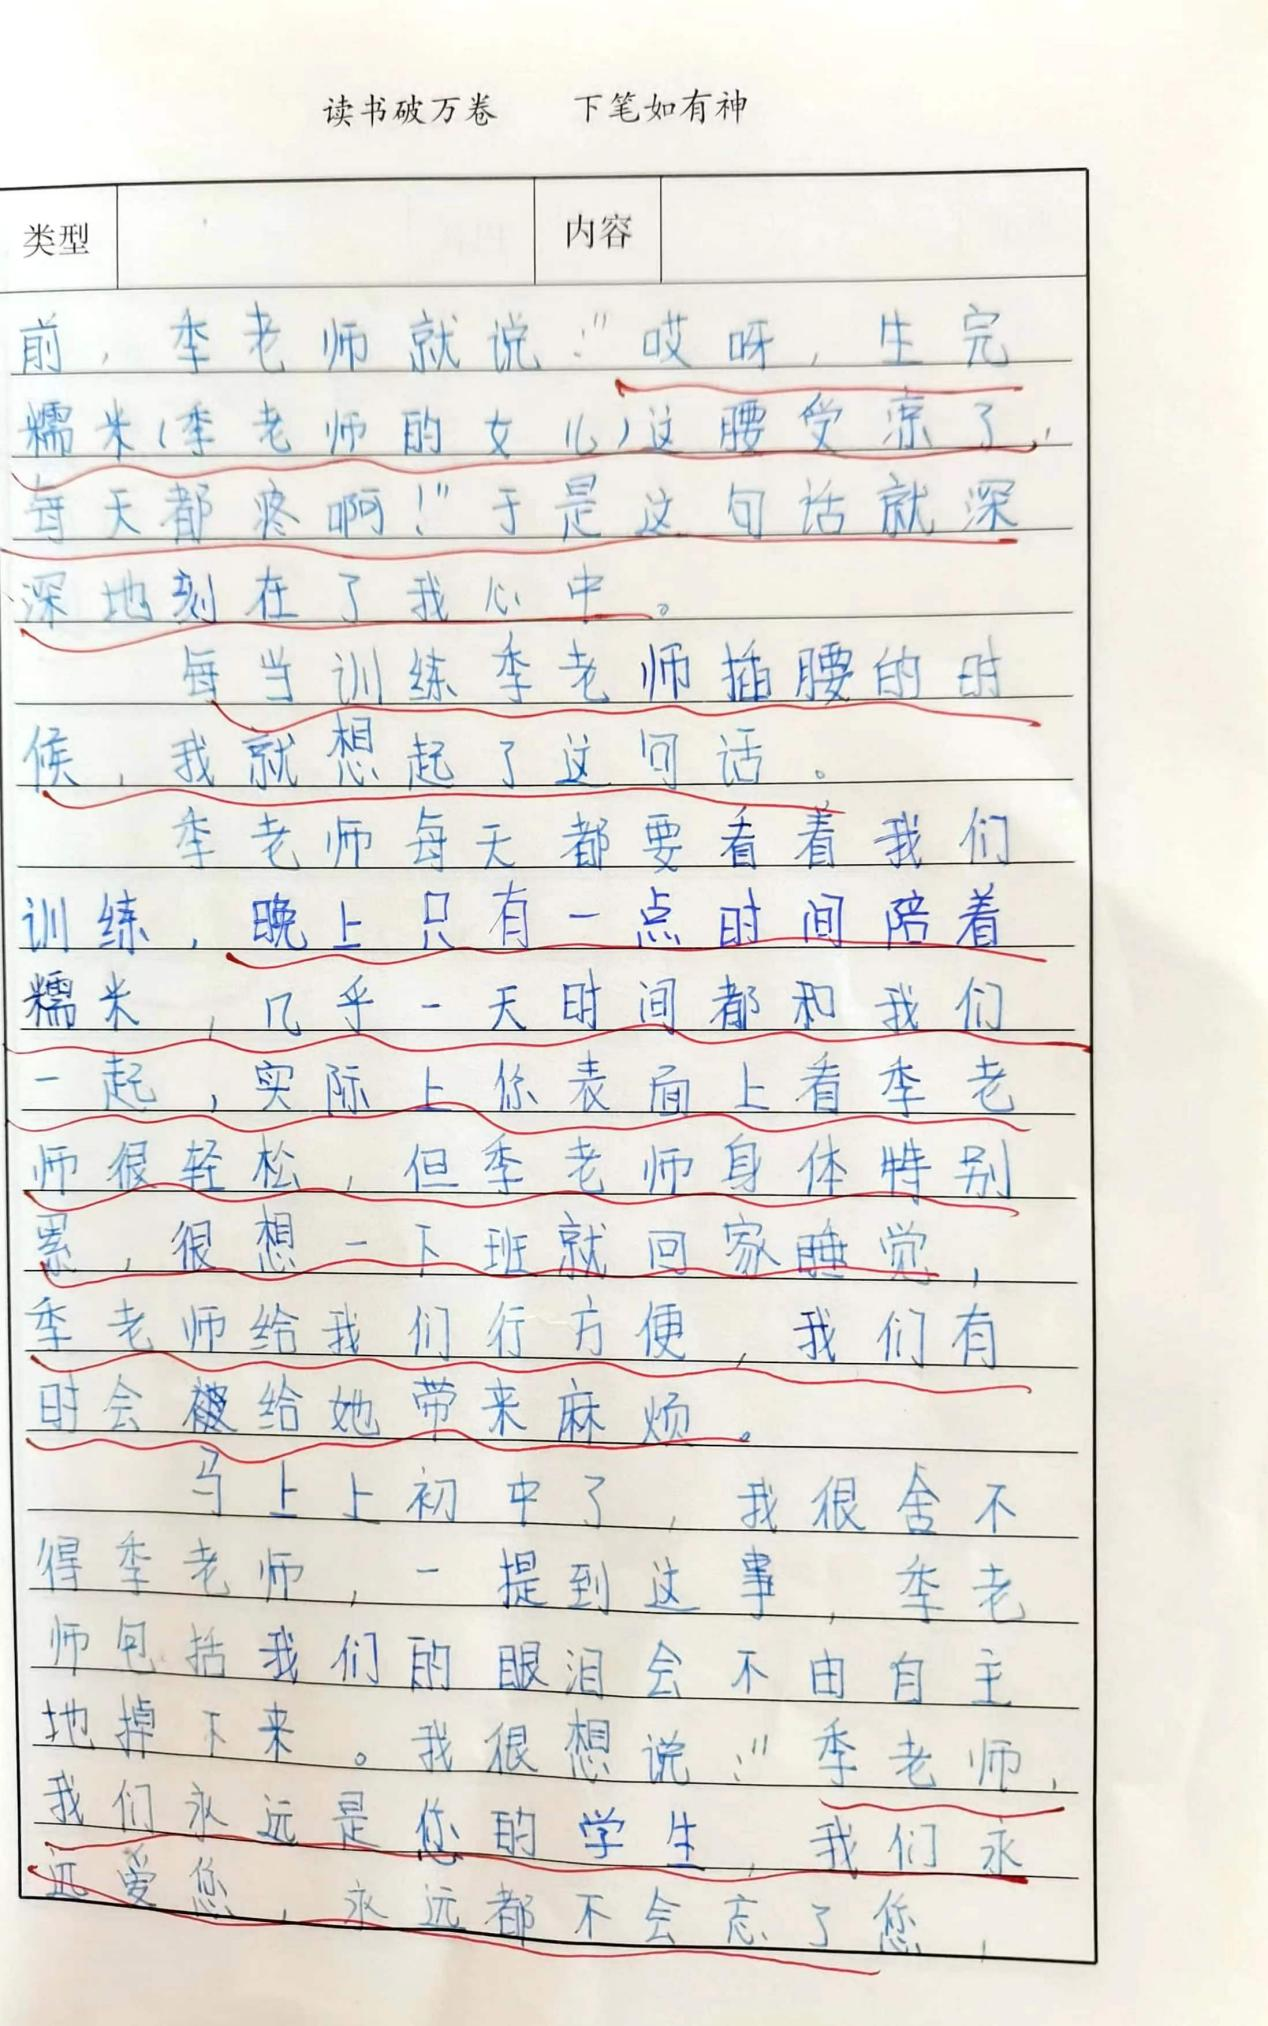 读书破万卷 下笔如有神
类型 内容
前，李老师就说：“哎呀，生完
糯米（李老师的女儿）这腰受凉了，
每天都疼啊！”于是这句话就深
深地刻在了我心中。
每当训练李老师插腰的时
候，我就想起了这句话。
李老师每天都要看着我们
训练，晚上只有一点时间陪着
糯米，几乎一天时间都和我们
一起，实际上你表面上看李老
师很轻松，但李老师身体特别
累，很想一下班就回家睡觉，
李老师给我们行方便，我们有
时会被给她带来麻烦。
马上上初中了，我很舍不
得李老师，一提到这事，李老
师包括我们的眼泪会不由自主
地掉下来。我很想说：“李老师，
我们永远是您的学生，我们永
远爱您，永远都不会忘了您，